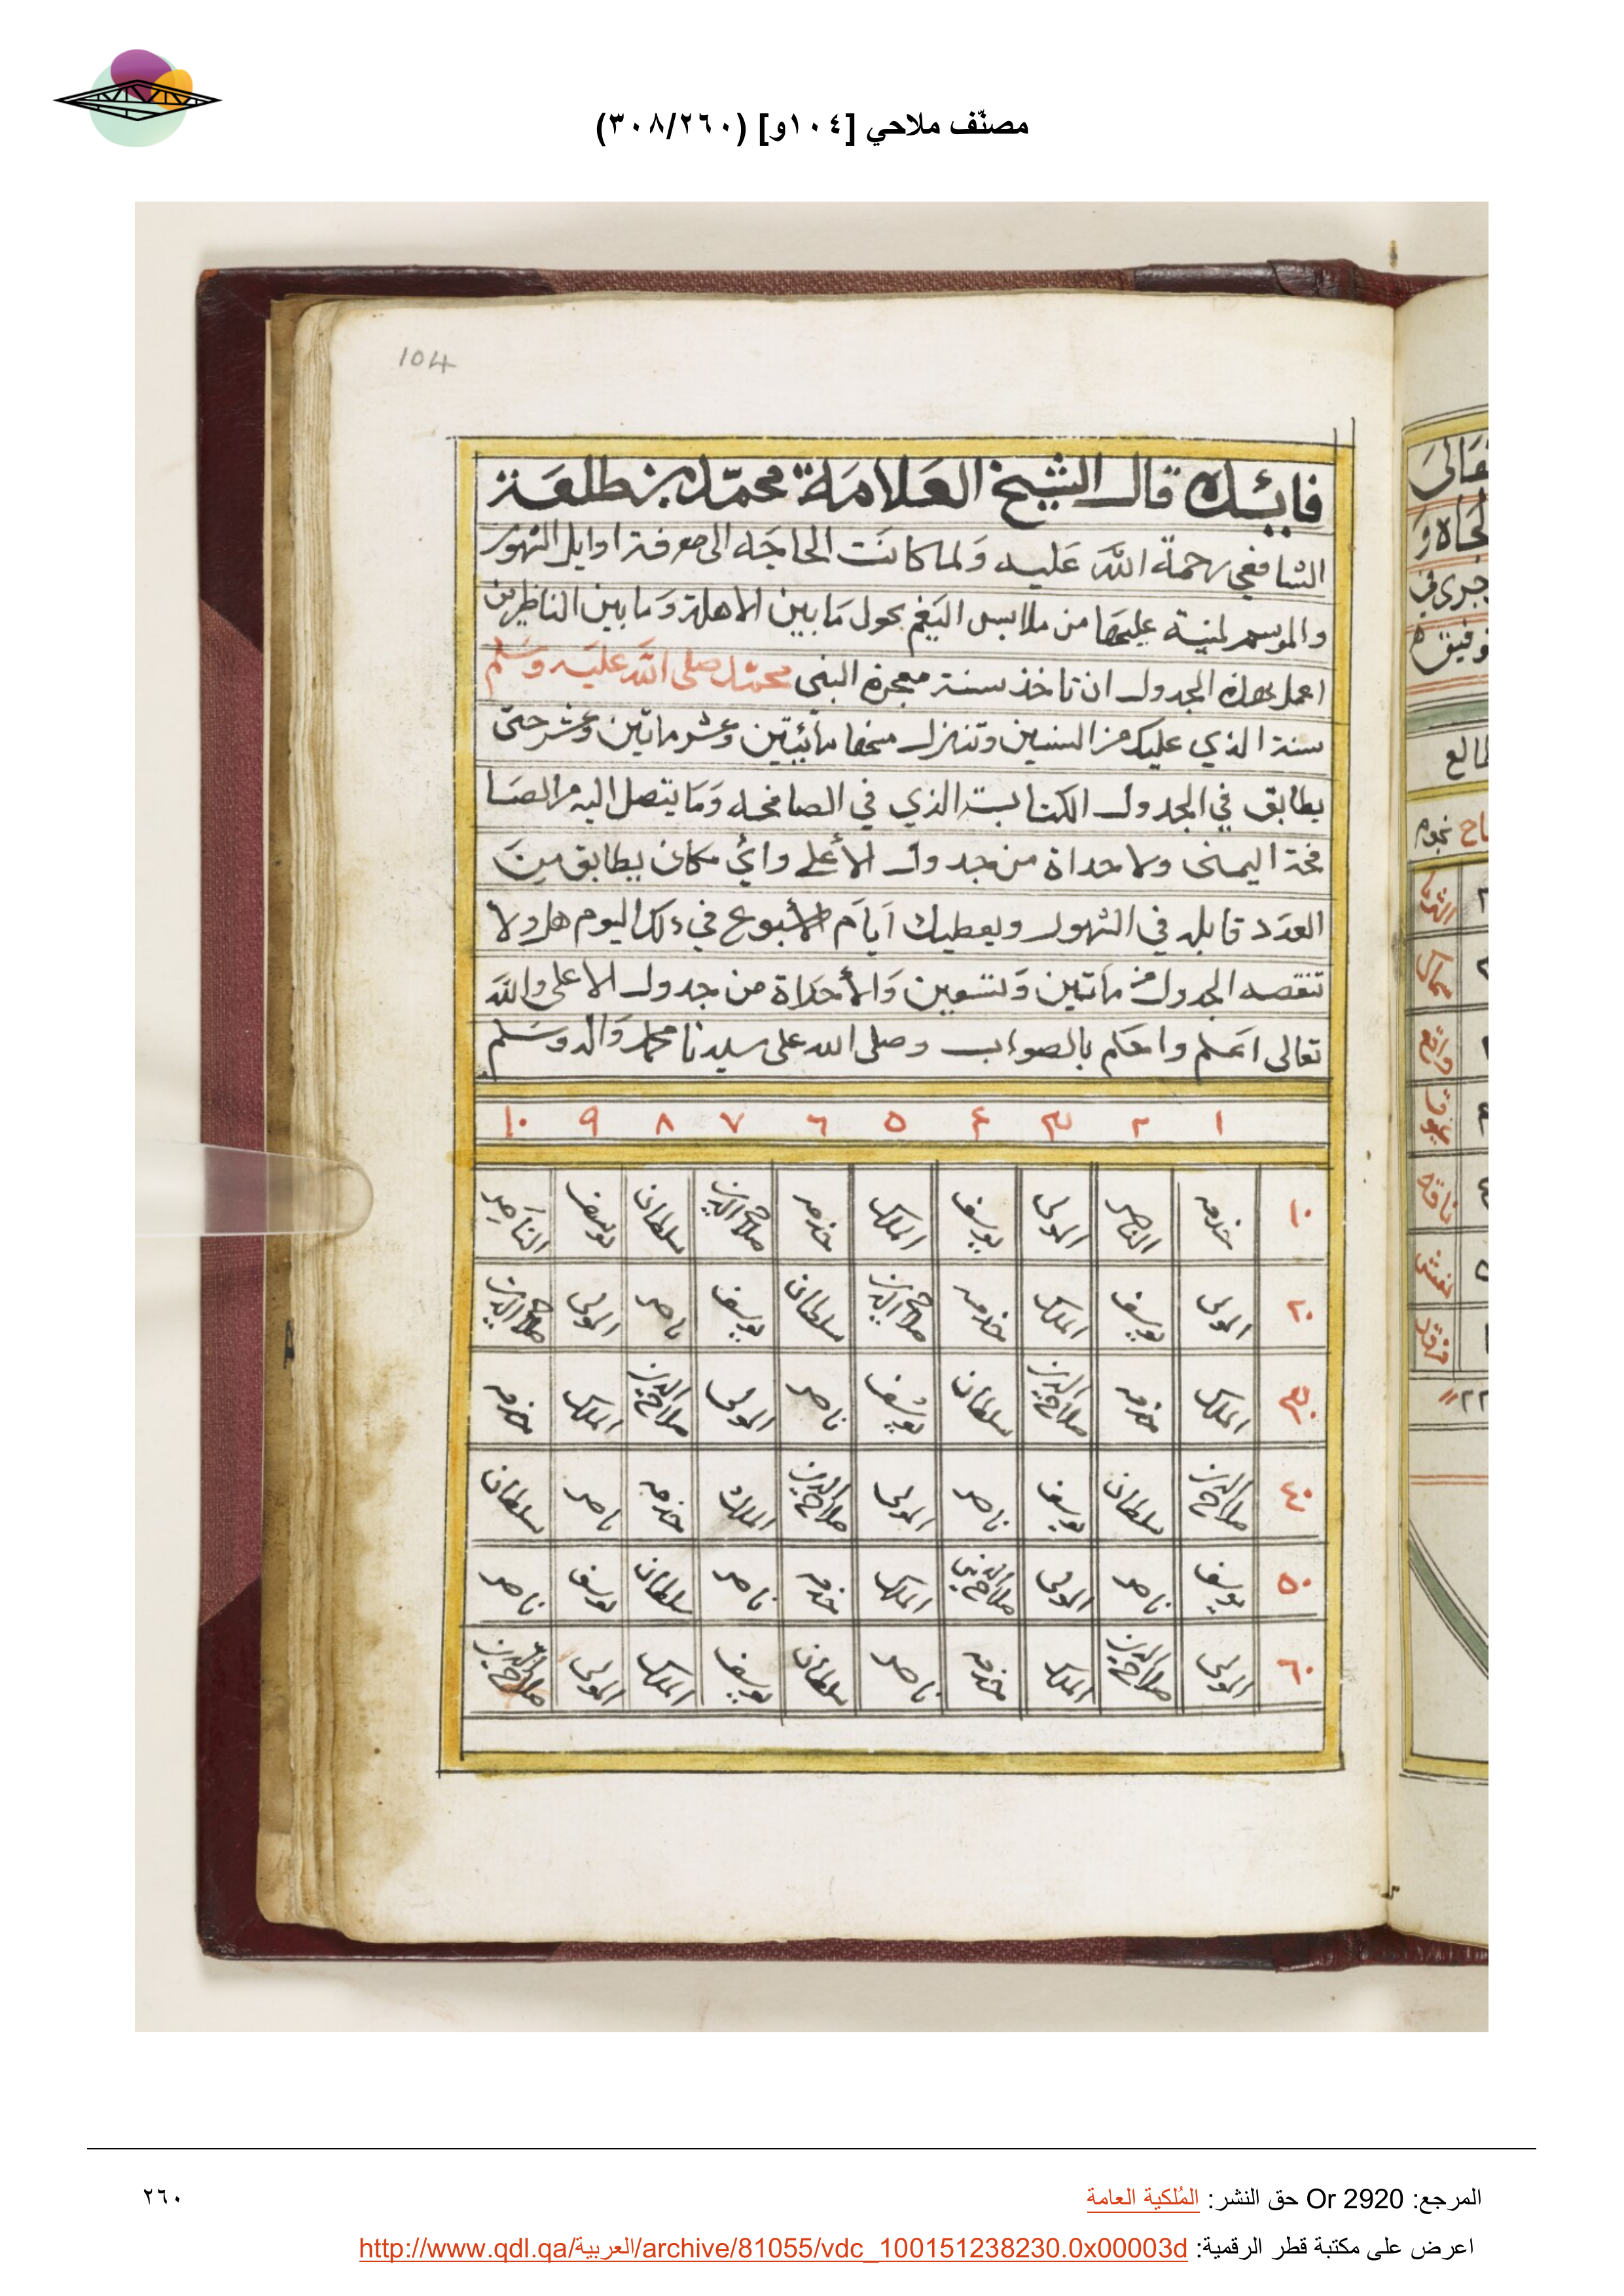 مصنّف ملاحي [١٠٤و] (٣٠٨/٢٦٠)
104
فائدة قال الشيخ العلامة محمد بن طلعة
الشافعي رحمة الله عليه ولما كانت الحاجة الى معرفة اوايل الشهور
والموسم لمنية عليها من ملابس الغيم يحول ما بين الاهلة وما بين الناظرين
اعمل بهذه الجدول ان تاخذ سنة معجرة النبي محمد صلى الله عليه وسلم
سنة الذي عليك من السنين وتنزل منها مائيتين وعشر ماتين وعشر حتى
يطابق في الجدول الكتابة الذي في الصافحه وما يتصل اليه من الصا
فحة اليمنى ولا حداة من جدول الأعلى وائ مكان يطابق من
العدد قابله في الشهور ويعطيك ايام الأسبوع في ذلك اليوم هل ولا
تنقصه الجدول من ماتين وتسعين والأحداة من جدول الاعلى والله
تعالى اعلم واحكم بالصواب وصلى الله على سيدنا محمد واله وسلم
١ ٢ ٣ ٤ ٥ ٦ ٧ ٨ ٩ ١٠
١٠ خذمه الناصر المولى يوسف الملك خذمه صلاح الدين سلطان يوسف الناصر
٢٠ المولى يوسف الملك خذمه صلاح الدين سلطان يوسف ناصر المولى صلاح الدين
٣٠ الملك خذمه صلاح الدين سلطان يوسف ناصر المولى صلاح الدين الملك خذمه
٤٠ صلاح الدين سلطان يوسف ناصر المولى صلاح الدين الملك خذمه ناصر سلطان
٥٠ يوسف ناصر المولى صلاح الدين الملك خذمه ناصر سلطان يوسف ناصر
٦٠ المولى صلاح الدين الملك خذمه ناصر سلطان يوسف الملك المولى صلاح الدين
المرجع: Or 2920 حق النشر: المُلكية العامة
٢٦٠
اعرض على مكتبة قطر الرقمية: http://www.qdl.qa/العربية/archive/81055/vdc_100151238230.0x00003d